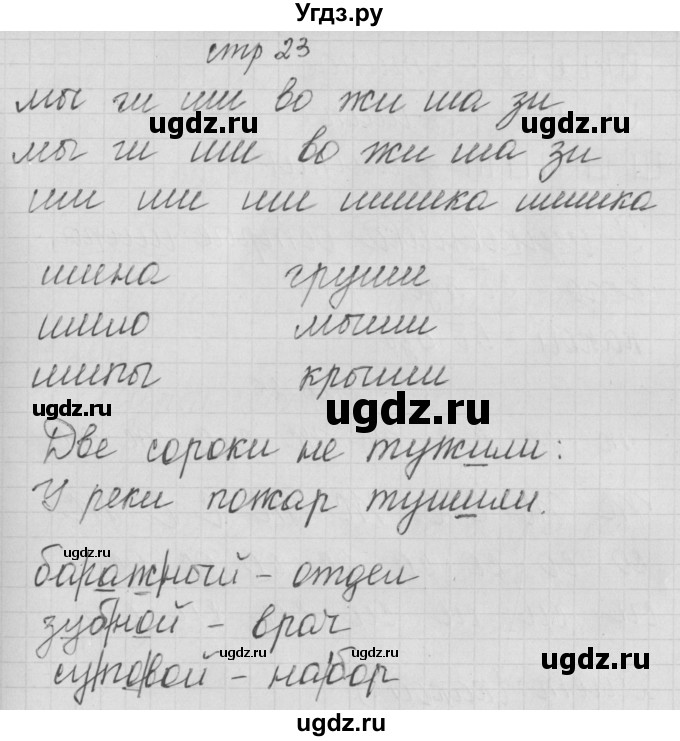 Угдз.ру
стр 23
мы ги ши во жи ша зи
ugdz.ru ugdz.ru
мы ги ши во жи ша зи
ши ши ши шишка шишка
шина груши
шило мыши
шипы крыши
ugdz.ru ugdz.ru ugdz.ru
Две сороки не тужили:
У реки пожар тушили.
ugdz.ru
ба|ра|ж|ный – отдел
зуб|ной – врач
ugdz.ru ugdz.ru ugdz.ru
су|по|вой – на|бор
ugdz.ru